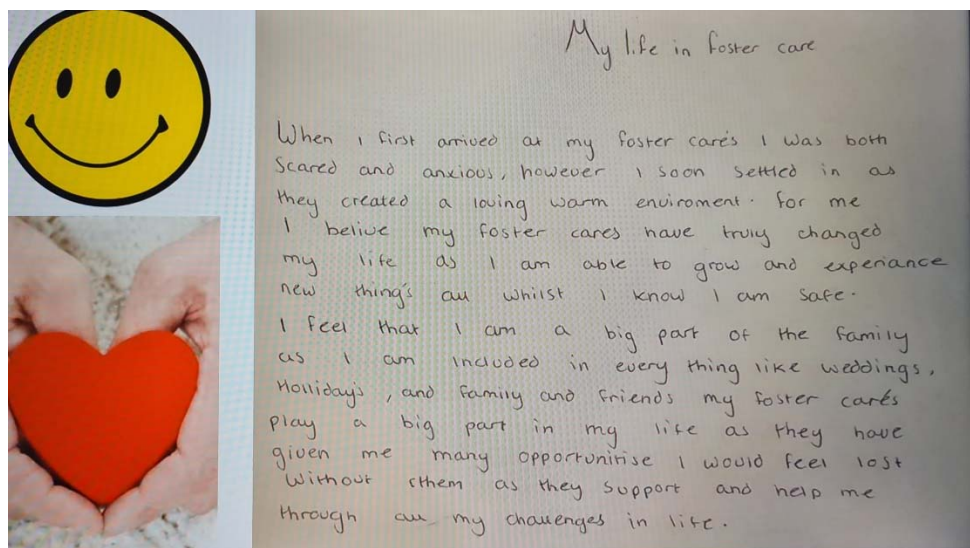 My life in foster care
When I first arrived at my foster carés I was both
Scared and anxious, however I soon settled in as
they created a loving warm enviroment. For me
I belive my foster cares have truly changed
my life as I am able to grow and experiance
new thing's all whilst I know I am safe.
I feel that I am a big part of the family
as I am included in every thing like weddings,
Holliday's, and family and friends my foster carés
play a big part in my life as they have
given me many opportunitise I would feel lost
Without them as they support and help me
through all my challenges in life.